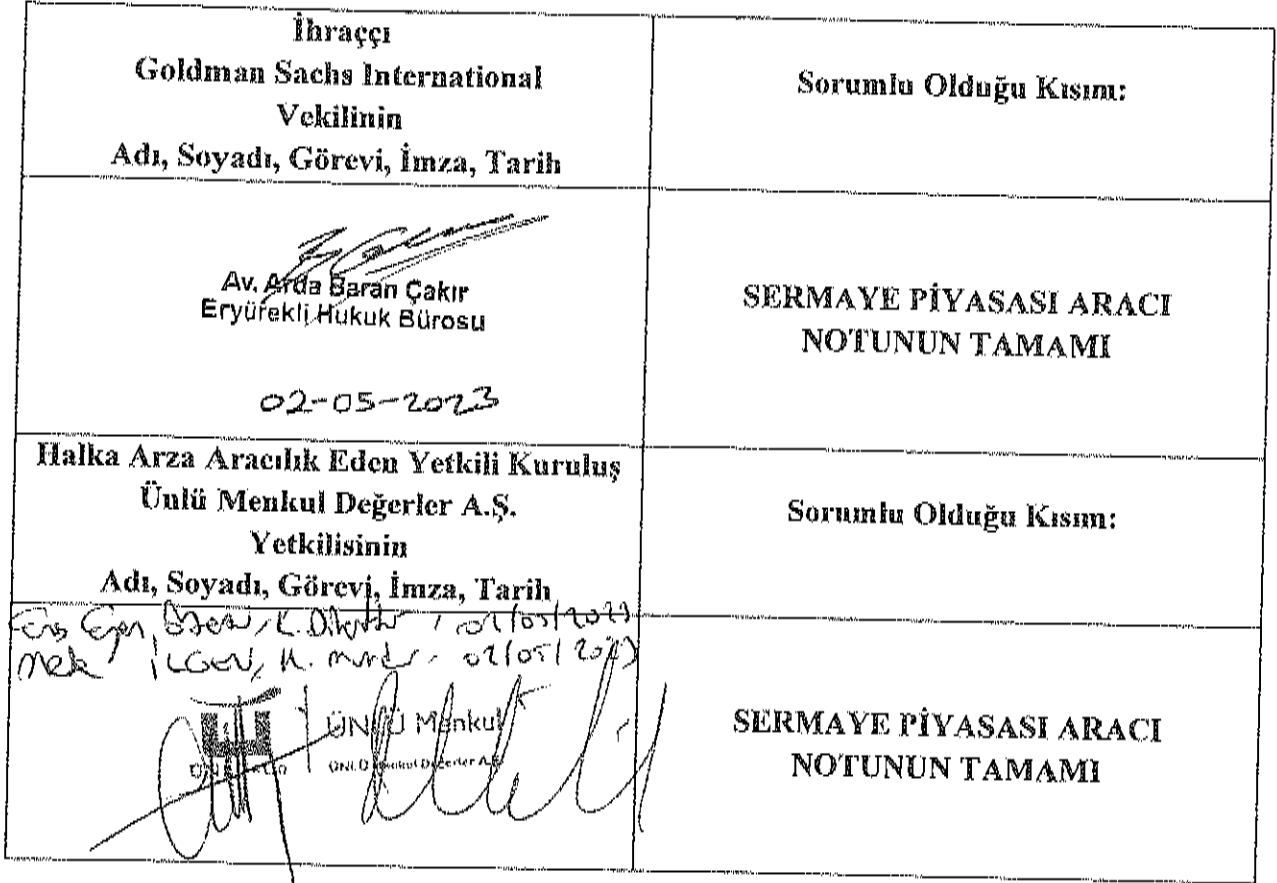 İhraççı
Goldman Sachs International
Vekilinin
Adı, Soyadı, Görevi, İmza, Tarih
Sorumlu Olduğu Kısım:
Av. Arda Baran Çakır
Eryürekli Hukuk Bürosu
02-05-2023
SERMAYE PİYASASI ARACI
NOTUNUN TAMAMI
Halka Arza Aracılık Eden Yetkili Kuruluş
Ünlü Menkul Değerler A.Ş.
Yetkilisinin
Adı, Soyadı, Görevi, İmza, Tarih
Sorumlu Olduğu Kısım:
02/05/2023
İLGEN, 02/05/2023
ÜNLÜ Menkul
ÜNLÜ Menkul Değerler A.Ş.
SERMAYE PİYASASI ARACI
NOTUNUN TAMAMI